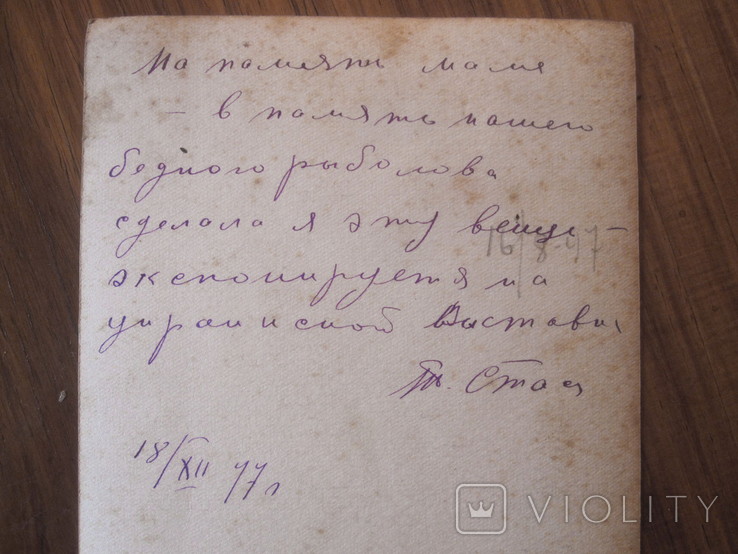 На память маме
– в память нашего
бедного рыболова
сделала я эту вещь –
16/8-47
экспонируется на
украинской выставке
18/XII 47 г
VIOLITY